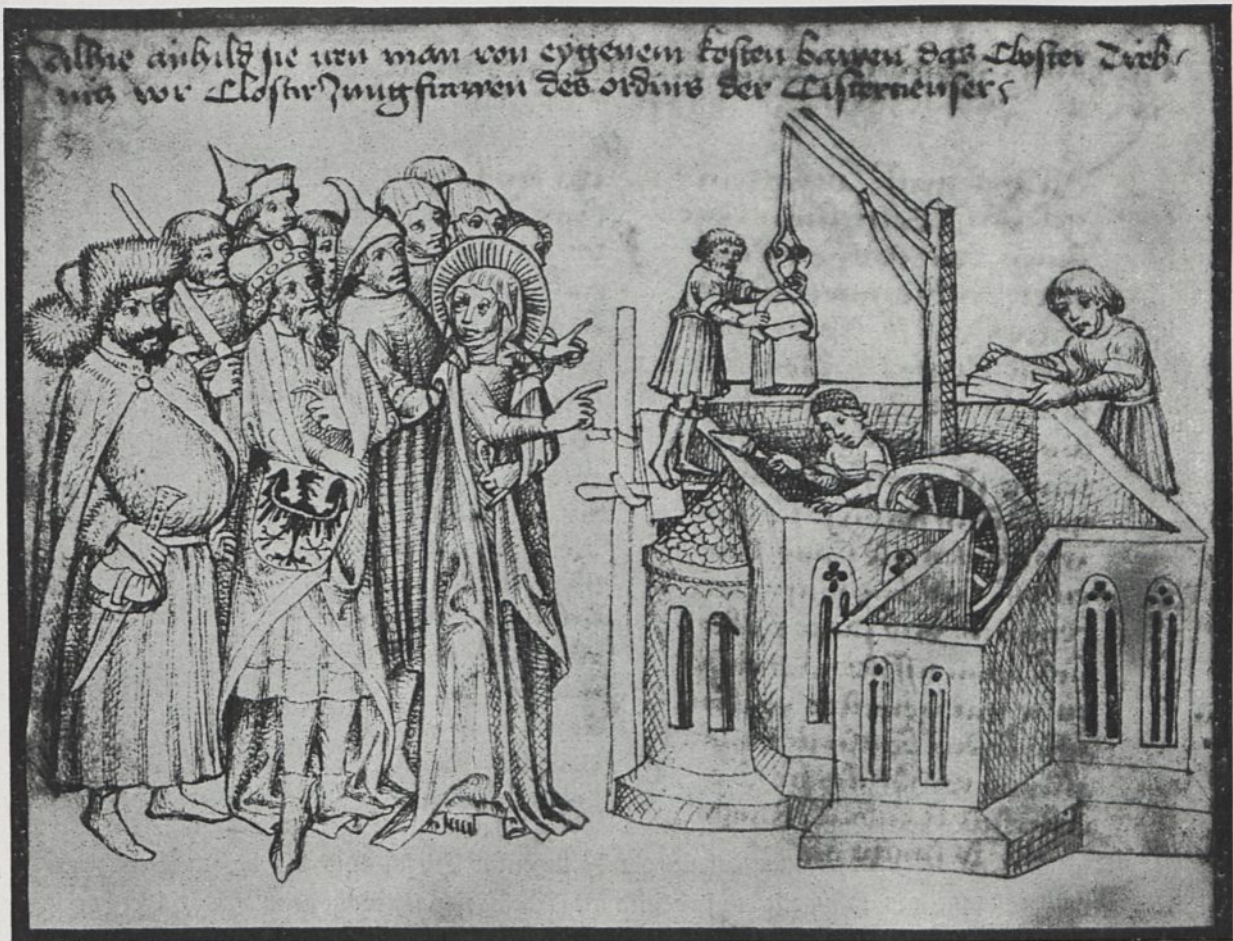 Alhie anhild sie iren man von eygenem kosten bawen das Closter Treb-
nitz vor Closter Jungfrawen des ordins der Cistercienser